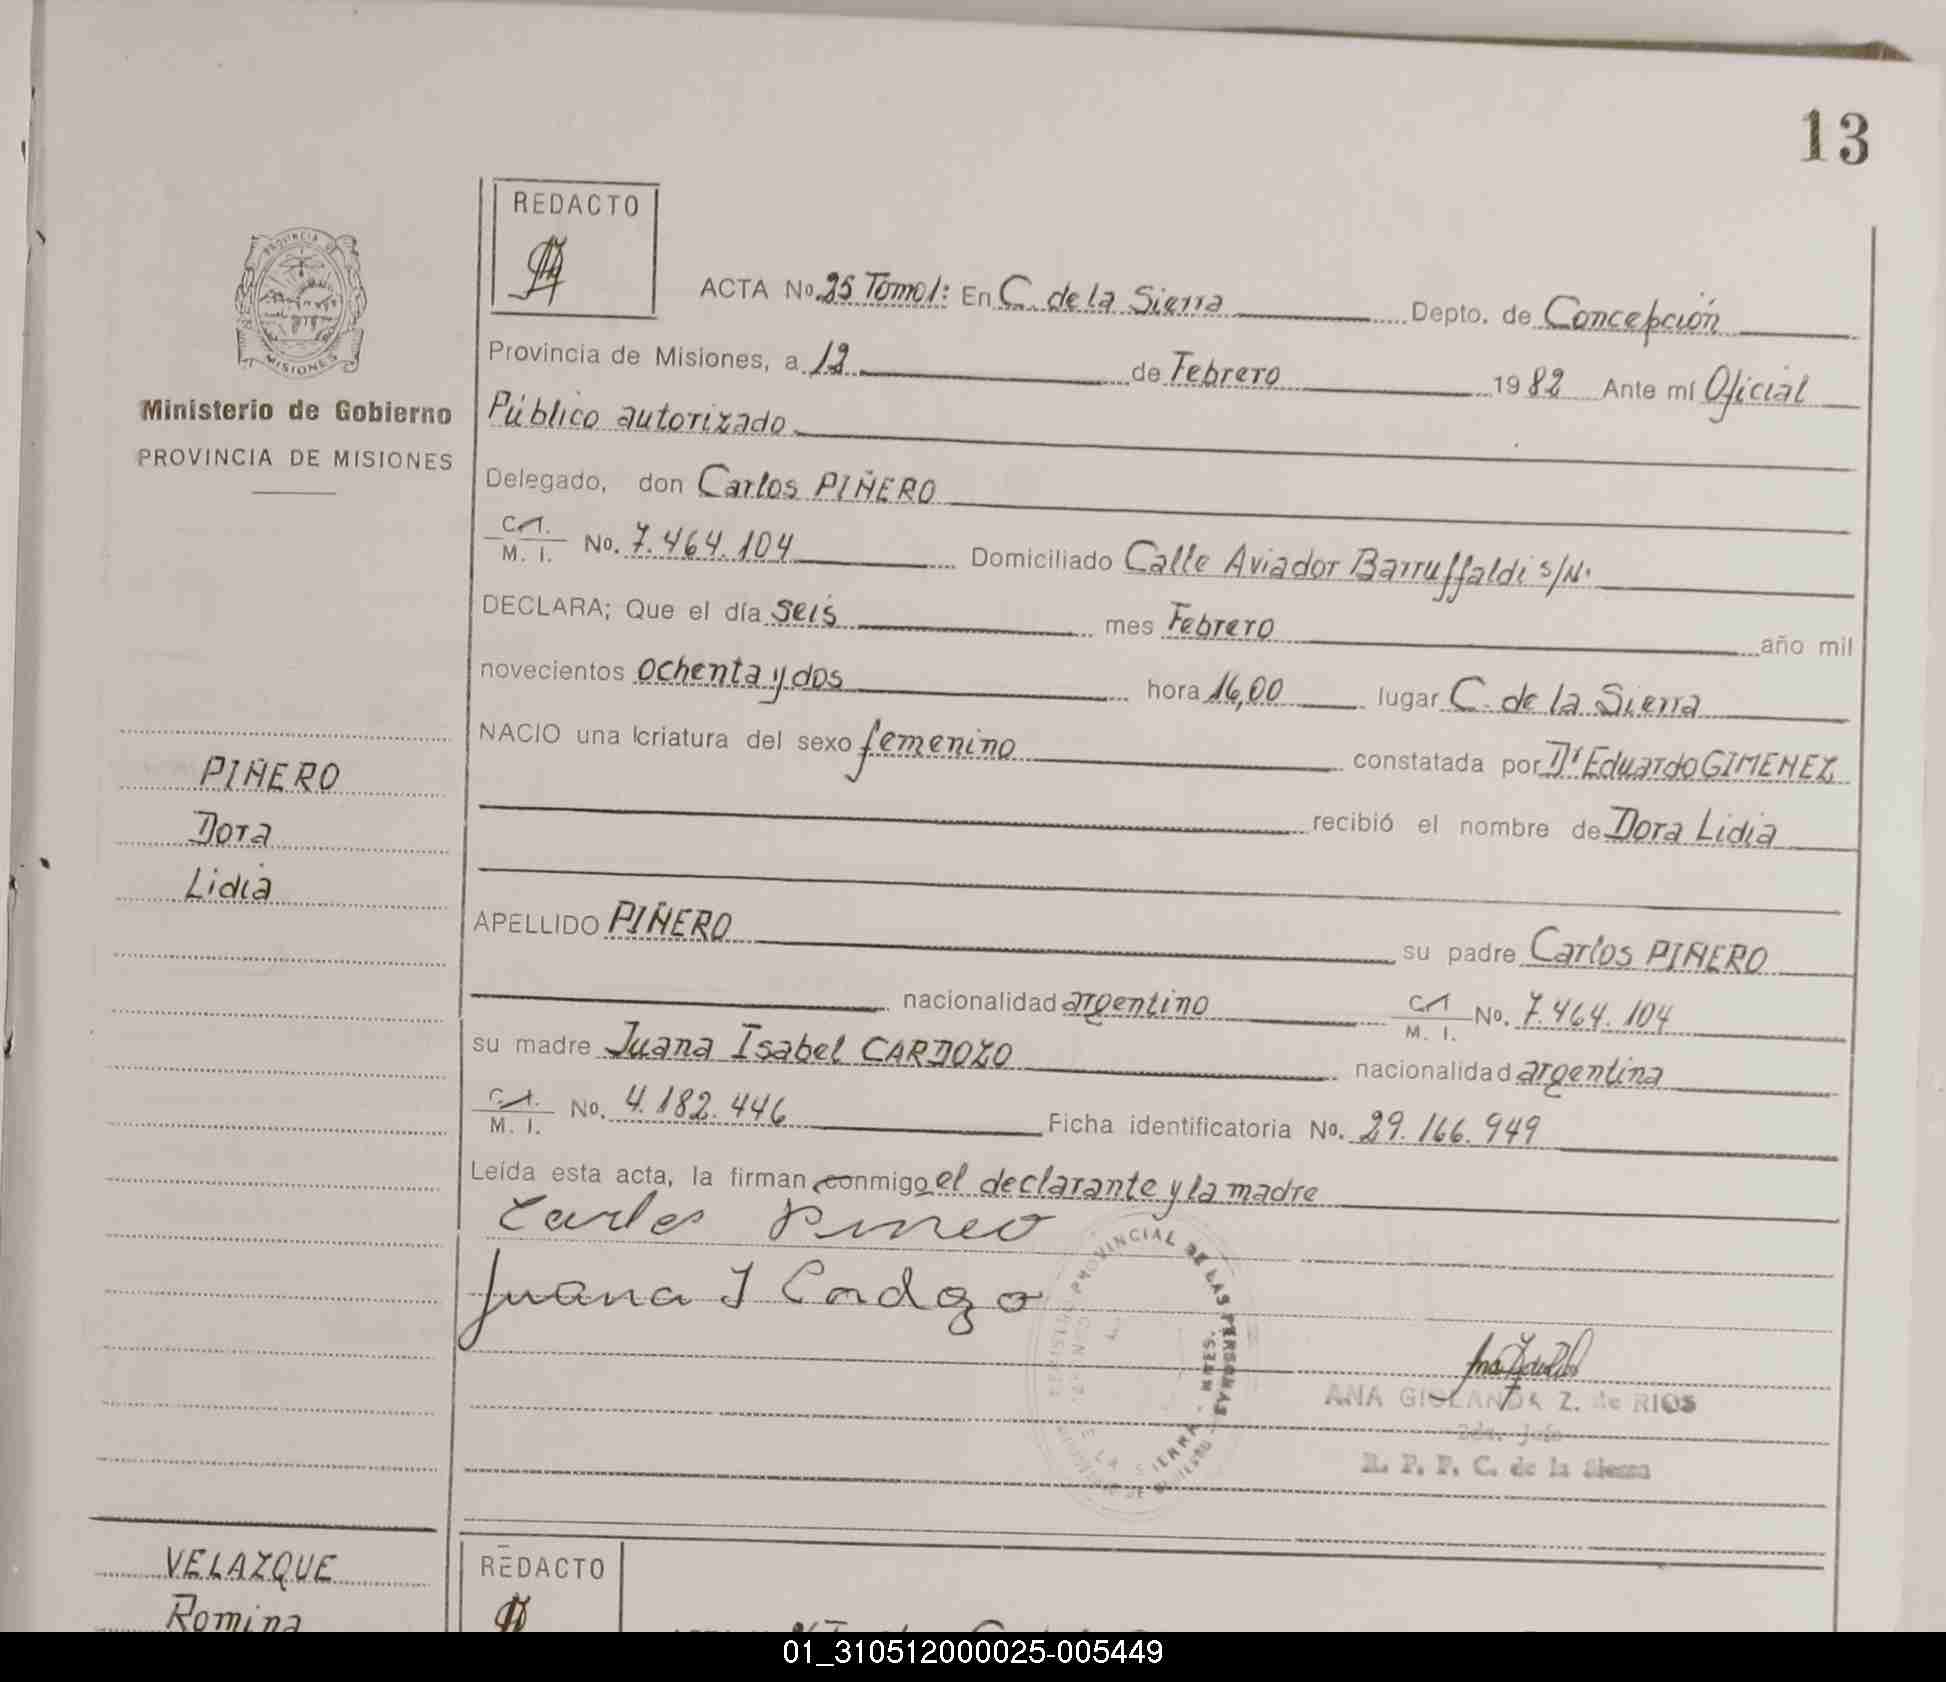 13
REDACTO
ACTA No. 25 Tomo 1: En C. de la Sierra Depto. de Concepción
Provincia de Misiones, a 12 de Febrero 1982 Ante mí Oficial
Público autorizado
Ministerio de Gobierno
PROVINCIA DE MISIONES
Delegado, don Carlos PIÑERO
M. I. No. 7.464.104 Domiciliado Calle Aviador Barruffaldi s/N.
DECLARA; Que el día seis mes Febrero año mil
novecientos ochenta y dos hora 16,00 lugar C. de la Sierra
NACIO una criatura del sexo femenino constatada por Dr Eduardo GIMENEZ
recibió el nombre de Dora Lidia
PIÑERO
Dora
Lidia
APELLIDO PIÑERO su padre Carlos PIÑERO
nacionalidad argentino M. I. No. 7.464.104
su madre Juana Isabel CARDOZO nacionalidad argentina
M. I. No. 4.182.446 Ficha identificatoria No. 29.166.949
Leída esta acta, la firman conmigo el declarante y la madre
Carlos Piñero
Juana I Cardozo
PROVINCIAL DE LAS PERSONAS
ANA GIOLANDA Z. de RIOS
R. P. P. C. de la Sierra
VELAZQUE
Romina
REDACTO
01_310512000025-005449